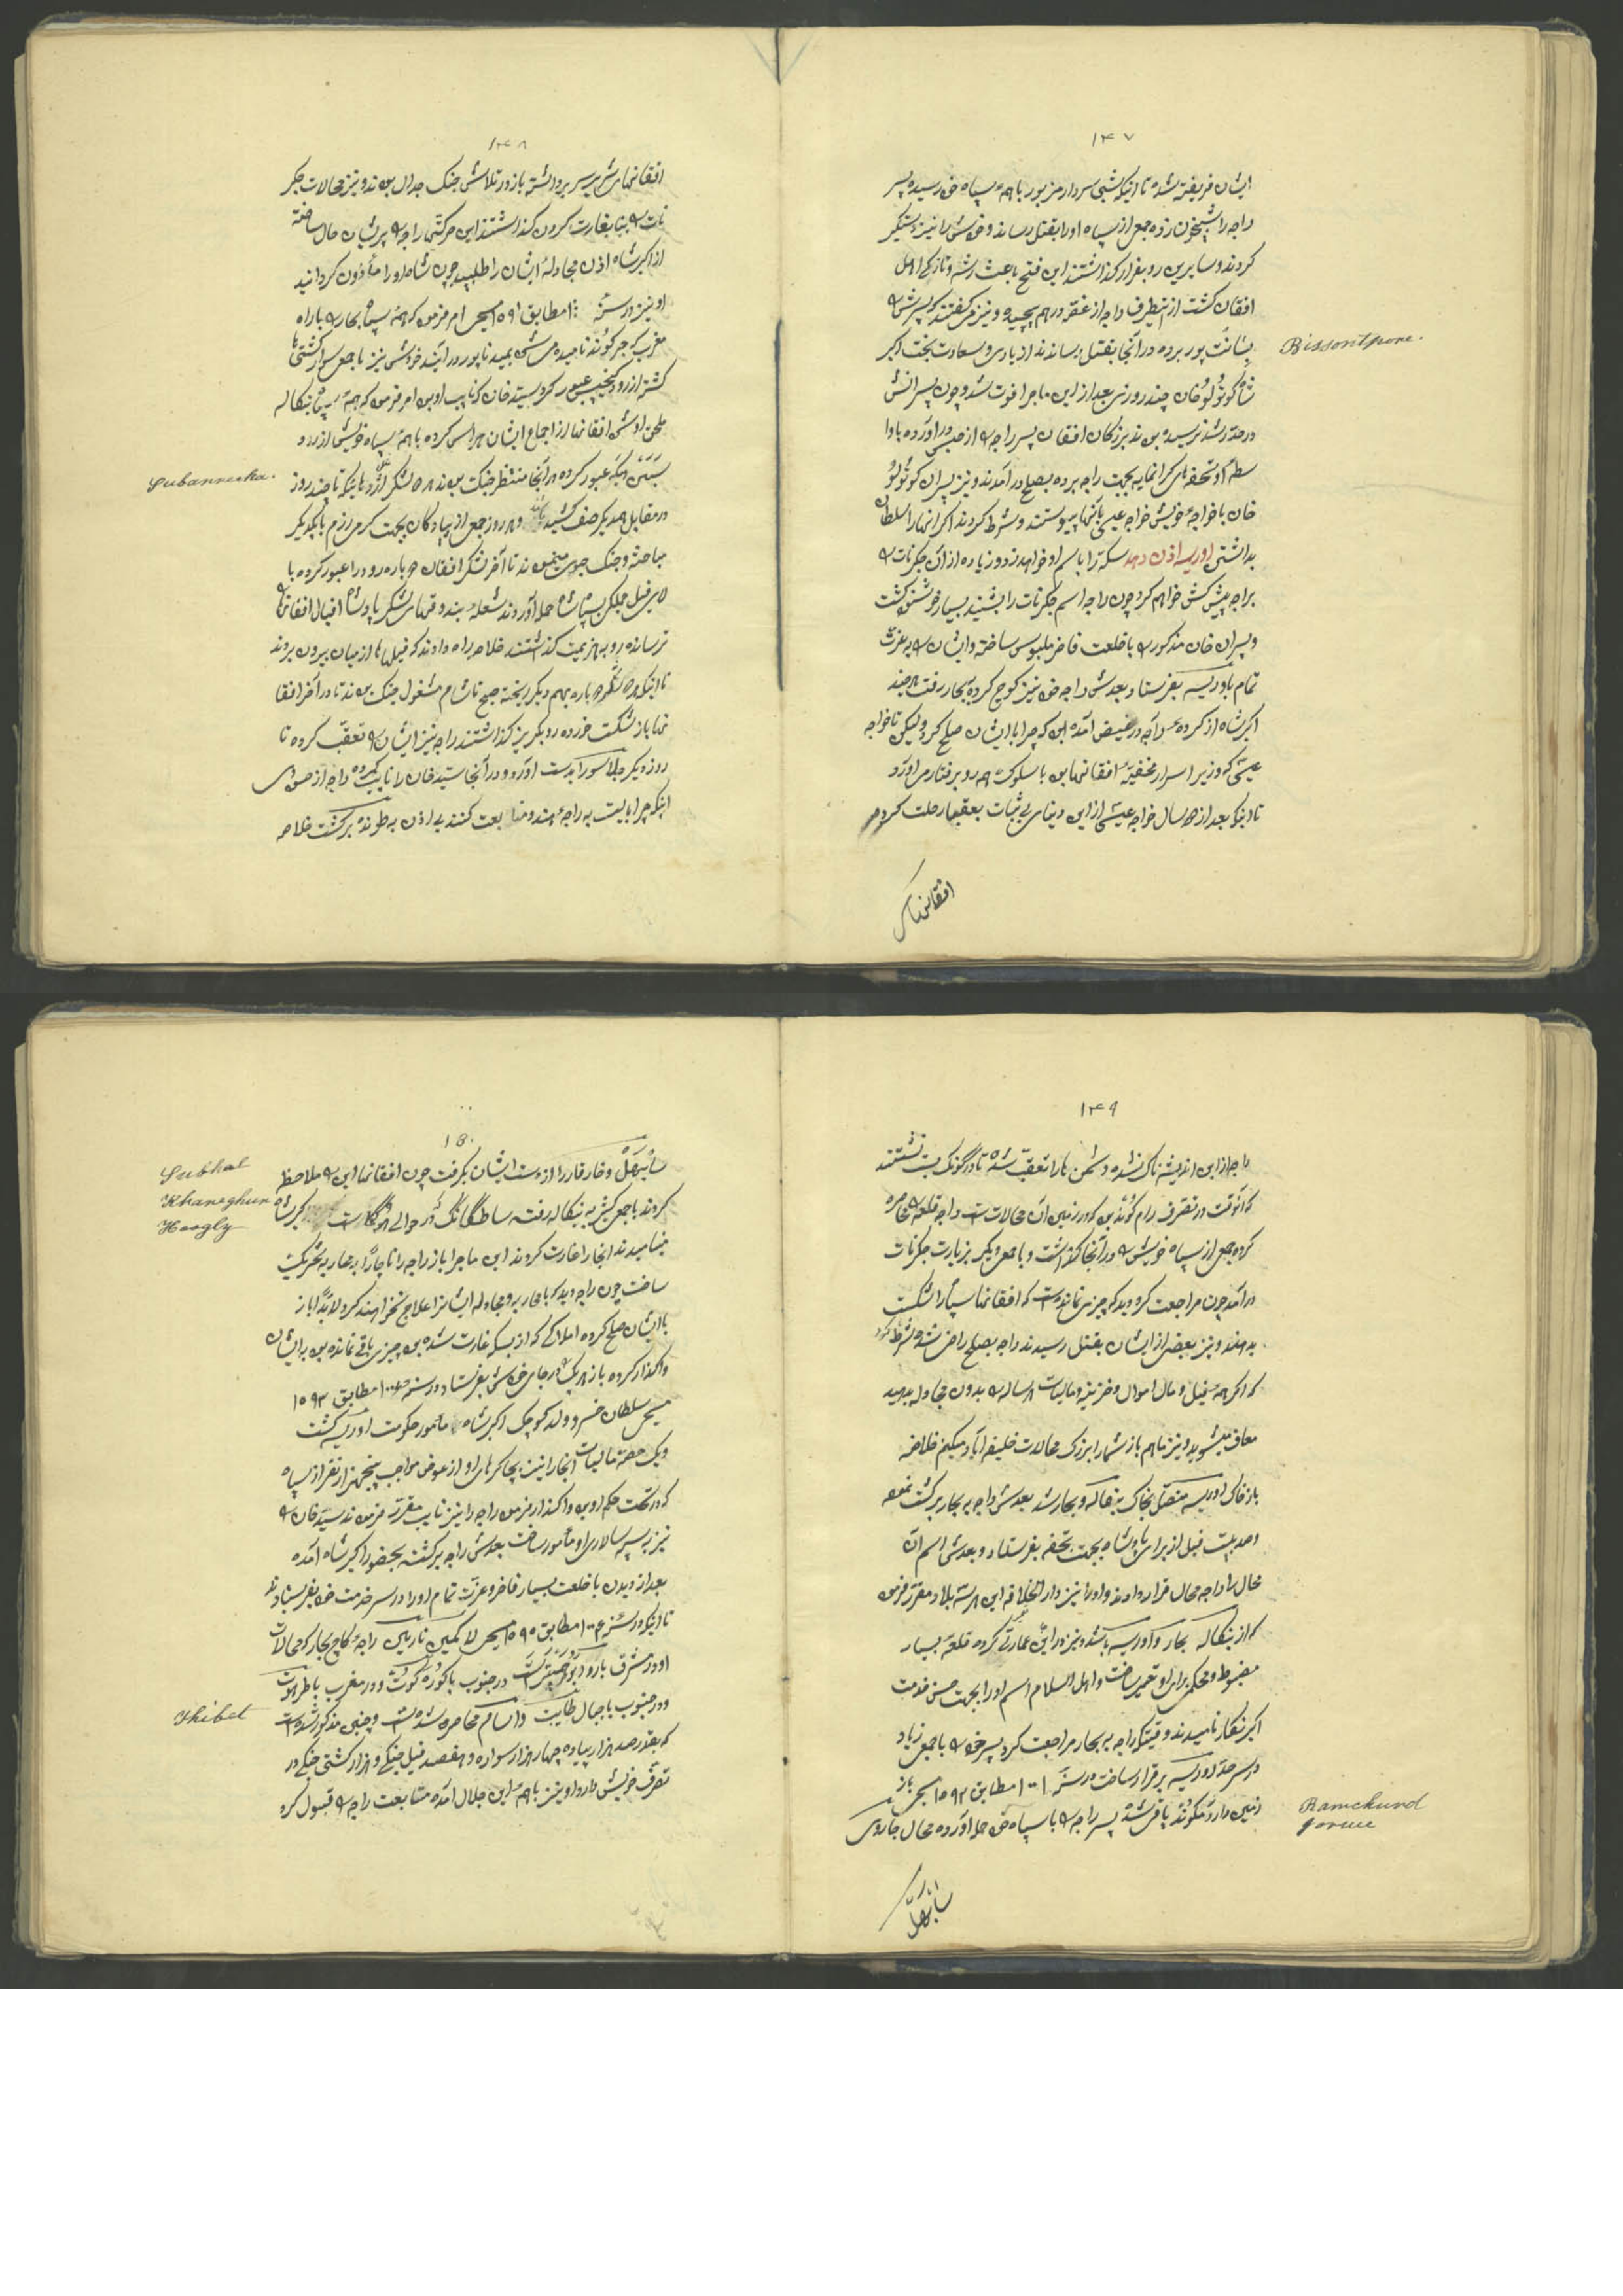 ۱۴۷
ایشان فریفته شده تا اینکه شبی سردار مزبور با همه سپاه خود رسیده پسر
راجه را شبیخون زده جمعی از سپاه او را بقتل رساند و خودش را نیز دستگیر
کردند و سایرین رو بفرار گذاشتند این فتح باعث رشد و تازکی اهل
افغان گشت از اینطرف راجه از غصّه درهم پیچیده و نیز میگفتند که پسرش را
بشانت پور برده در آنجا بقتل رسانند از یاری و سعادت بخت اکبر
Bissontpore.
شاه کوتولو خان چند روزی بعد از این ماجرا فوت شد و چون پسرانش
در حد رشد نرسیده بودند بزرکان افغان پسر راجه را از حبس در آورده با او
و تحفه های کرانمایه بجهت راجه برده بصلح در آمدند و نیز پسران کوتولو
خان با خواجه خویش خواجه عیسی بآنها پیوستند و شرط کردند اکر آنها را سلطان
بداشتن اوریسه اذن دهد سکه را باسم او خواهند زد و زیاده از آن جکرنات را
براجه پیش کش خواهم کرد چون راجه اسم جکرنات را شنید بسیار خوشش گشت
و پسران خان مذکور را با خلعت فاخر ملبوس ساخته و ایشان را به عزت
تمام باوریسه بفرستاد بعدش راجه خود نیز کوچ کرده به بهار رفت هر چند
اکبر شاه از کرده راجه در غیض آمده بود که چرا با ایشان صلح کرد ولیکن تا خواجه
عیسی که وزیر اسرار مخفیّه افغانها بود با سلوک همه رو برفتار می آورد
تا اینکه بعد از دو سال خواجه عیسی از این دنیای بی ثبات بعقبی رحلت کرده
افغانهای
۱۴۸
افغانهای شریر سر برداشته باز در تلاش جنک و جدال بودند و نیز محالات جکر
نات را بنا بغارت کردن گذاشتند این حرکتها راجه را پریشان حال ساخته
از اکبر شاه اذن مجادلهٔ ایشان را طلبید چون شاه او را مأذون کردانید
او نیز در سنه مطابق ۱۵۹۱ مسیحی امر فرمود که همه سپاه بهار را با راه
مغرب که جرکوند نامیده می شود بمیدناپور در آیند خودش نیز با جمعی سوار کشتی ها
کشته از رود عبور کرد سیّد خان که نایب او بود امر فرمود که همه سپاه بنکاله
ملحق او شود افغانها از اجماع ایشان هراس کرده با همه سپاه خویش از رود
Subanreeka.
عبور کرده در آنجا منتظر جنک بودند هر دو لشکر تا چند روز
در مقابل همدیکر صف کشیده و هر روز جمعی از پیادکان بجهت کرمی رزم با یکدیکر
مباحثه و جنک جوئی مینمودند تا آخر لشکر افغان دوباره رود را عبور کرده با
فیل جنکی بسپاه شاه حمله آوردند شعلهٔ بندوقهای لشکر پادشاه افیال افغانها را
ترسانده رو بهزیمت گذاشتند خلاصه راه دادند که فیلها از میان بیرون بروند
تا اینکه هر دو لشکر دوباره بهم دیکر ریخته صبح تا شام مشغول جنک بودند تا در آخر افغا
نها باز شکست خورده رو بکریز گذاشتند راجه نیز ایشان را تعقّب کرده تا
روز دیکر جلاسور را بدست آورد و در آنجا سیّد خان را نایب کرده راجه از
اینکه چرا بایست به راجهٔ هندو متابعت کنند بی اذن به طونده برگشت خلاصه
۱۴۹
راجه از این اندیشه ناک نشده دشمن ها را تعقّب شده تا در نشستند
که آنوقت در تصرف رام کوند بود که زمین آن محالات است راجه قلعه را محاصره
کرده جمعی از سپاه خویش را در آنجا گذاشت و با جمعی دیکر بزیارت جکرنات
در آمد چون مراجعت کرد دید که چیزی نمانده است که افغانها سپاه را شکست
بدهند و نیز بعضی از ایشان بقتل رسیدند راجه بصلح راضی شده شرط کرد
که اکر همه فیل و مال اموال و خزینه و مالیات هر ساله را بدون مجادله بدهید
معاف میشوید و نیز ما هم باز شما را بزرک محالات خلیفه آباد میکنیم خلاصه
باز خاک اوریسه متصل بخاک بنکاله و بهار شد بعدش راجه به بهار برکشت
و صد بیست فیل از برای پادشاه بجهت تحفه بفرستاد و بعدش اسم آن
محال را راجه محال قرار دادند و او را نیز دار الخلافهٔ این هر سه بلاد مقرّر فرمود
که از بنکاله بهار و اوریسه باشد و نیز در این عمارتی کرده قلعهٔ بسیار
مضبوط و محکم برای او تعمیر ساخت و اهل اسلام اسم او را بجهت حسن خدمت
اکبر نکار نامیدند وقتیکه راجه به بهار مراجعت کرد پسر خود را با جمعی زیاد
در سرحدّ اوریسه برقرار ساخت در سنه ۱۰۰۱ مطابق ۱۵۹۲ مسیحی باز
Ramchund
زمین دار رمکوند یاغی شده پسر راجه را با سپاه خود حمله آورده محال جاروی
سانبهل
۱۵۰
سانبهل و خارقار را از دست ایشان بکرفت چون افغانها این را ملاحظه
Subhal
Khareghur
Hoogly
کردند با جمعی کشتی به بنکاله رفته سابقا که در حوالی هوکلی است اکبر شاه
مینامیدند آنجا را غارت کردند این ماجرا باز راجه را ناچارا به محاربه تحریک
ساخت چون راجه دید که با محاربه و مجادله ایشانرا علاج نخواهند کرد لابدّا باز
با ایشان صلح کرده املاکی که از بسکه غارت شده بود چیزی باقی نمانده بود به ایشان
واگذار کرده باز هر یک را در جای خودش بفرستاد در سنه مطابق ۱۵۹۳
مسیحی سلطان خسرو ولد کوچک اکبر شاه مأمور حکومت اوریسه گشت
و یک حصه مالیات آنجا را نیز بچاکرهای او از عوض مواجب پنجهزار نفر از سپاه
که در تحت حکم او بود واگذار فرمود راجه را نیز نایب مقرّر فرمودند سیّد خان را
نیز به سپه سالاری او مأمور ساخت بعدش راجه برگشته بحضور اکبر شاه آمده
بعد از دیدن با خلعت بسیار فاخر و عزّت تمام او را در سر خدمت خود بفرستادند
تا اینکه در سنه ۱۰۰۴ مطابق ۱۵۹۵ مسیحی لاکمین نارین راجهٔ کاچ بهار که محالات
او در مشرق با رود در جنوب با کوره کوت و در مغرب با طرهوت
Thibet
و در جنوب با جبال طایبت و اسام محاصره شده است و چنین مذکور شده است
که بقدر صد هزار پیاده چهار هزار سواره و هفصد فیل جنکی و هزار کشتی جنکی در
تصرّف خویش دارد او نیز با همه این جلال آمده متابعت راجه را قبول کرد